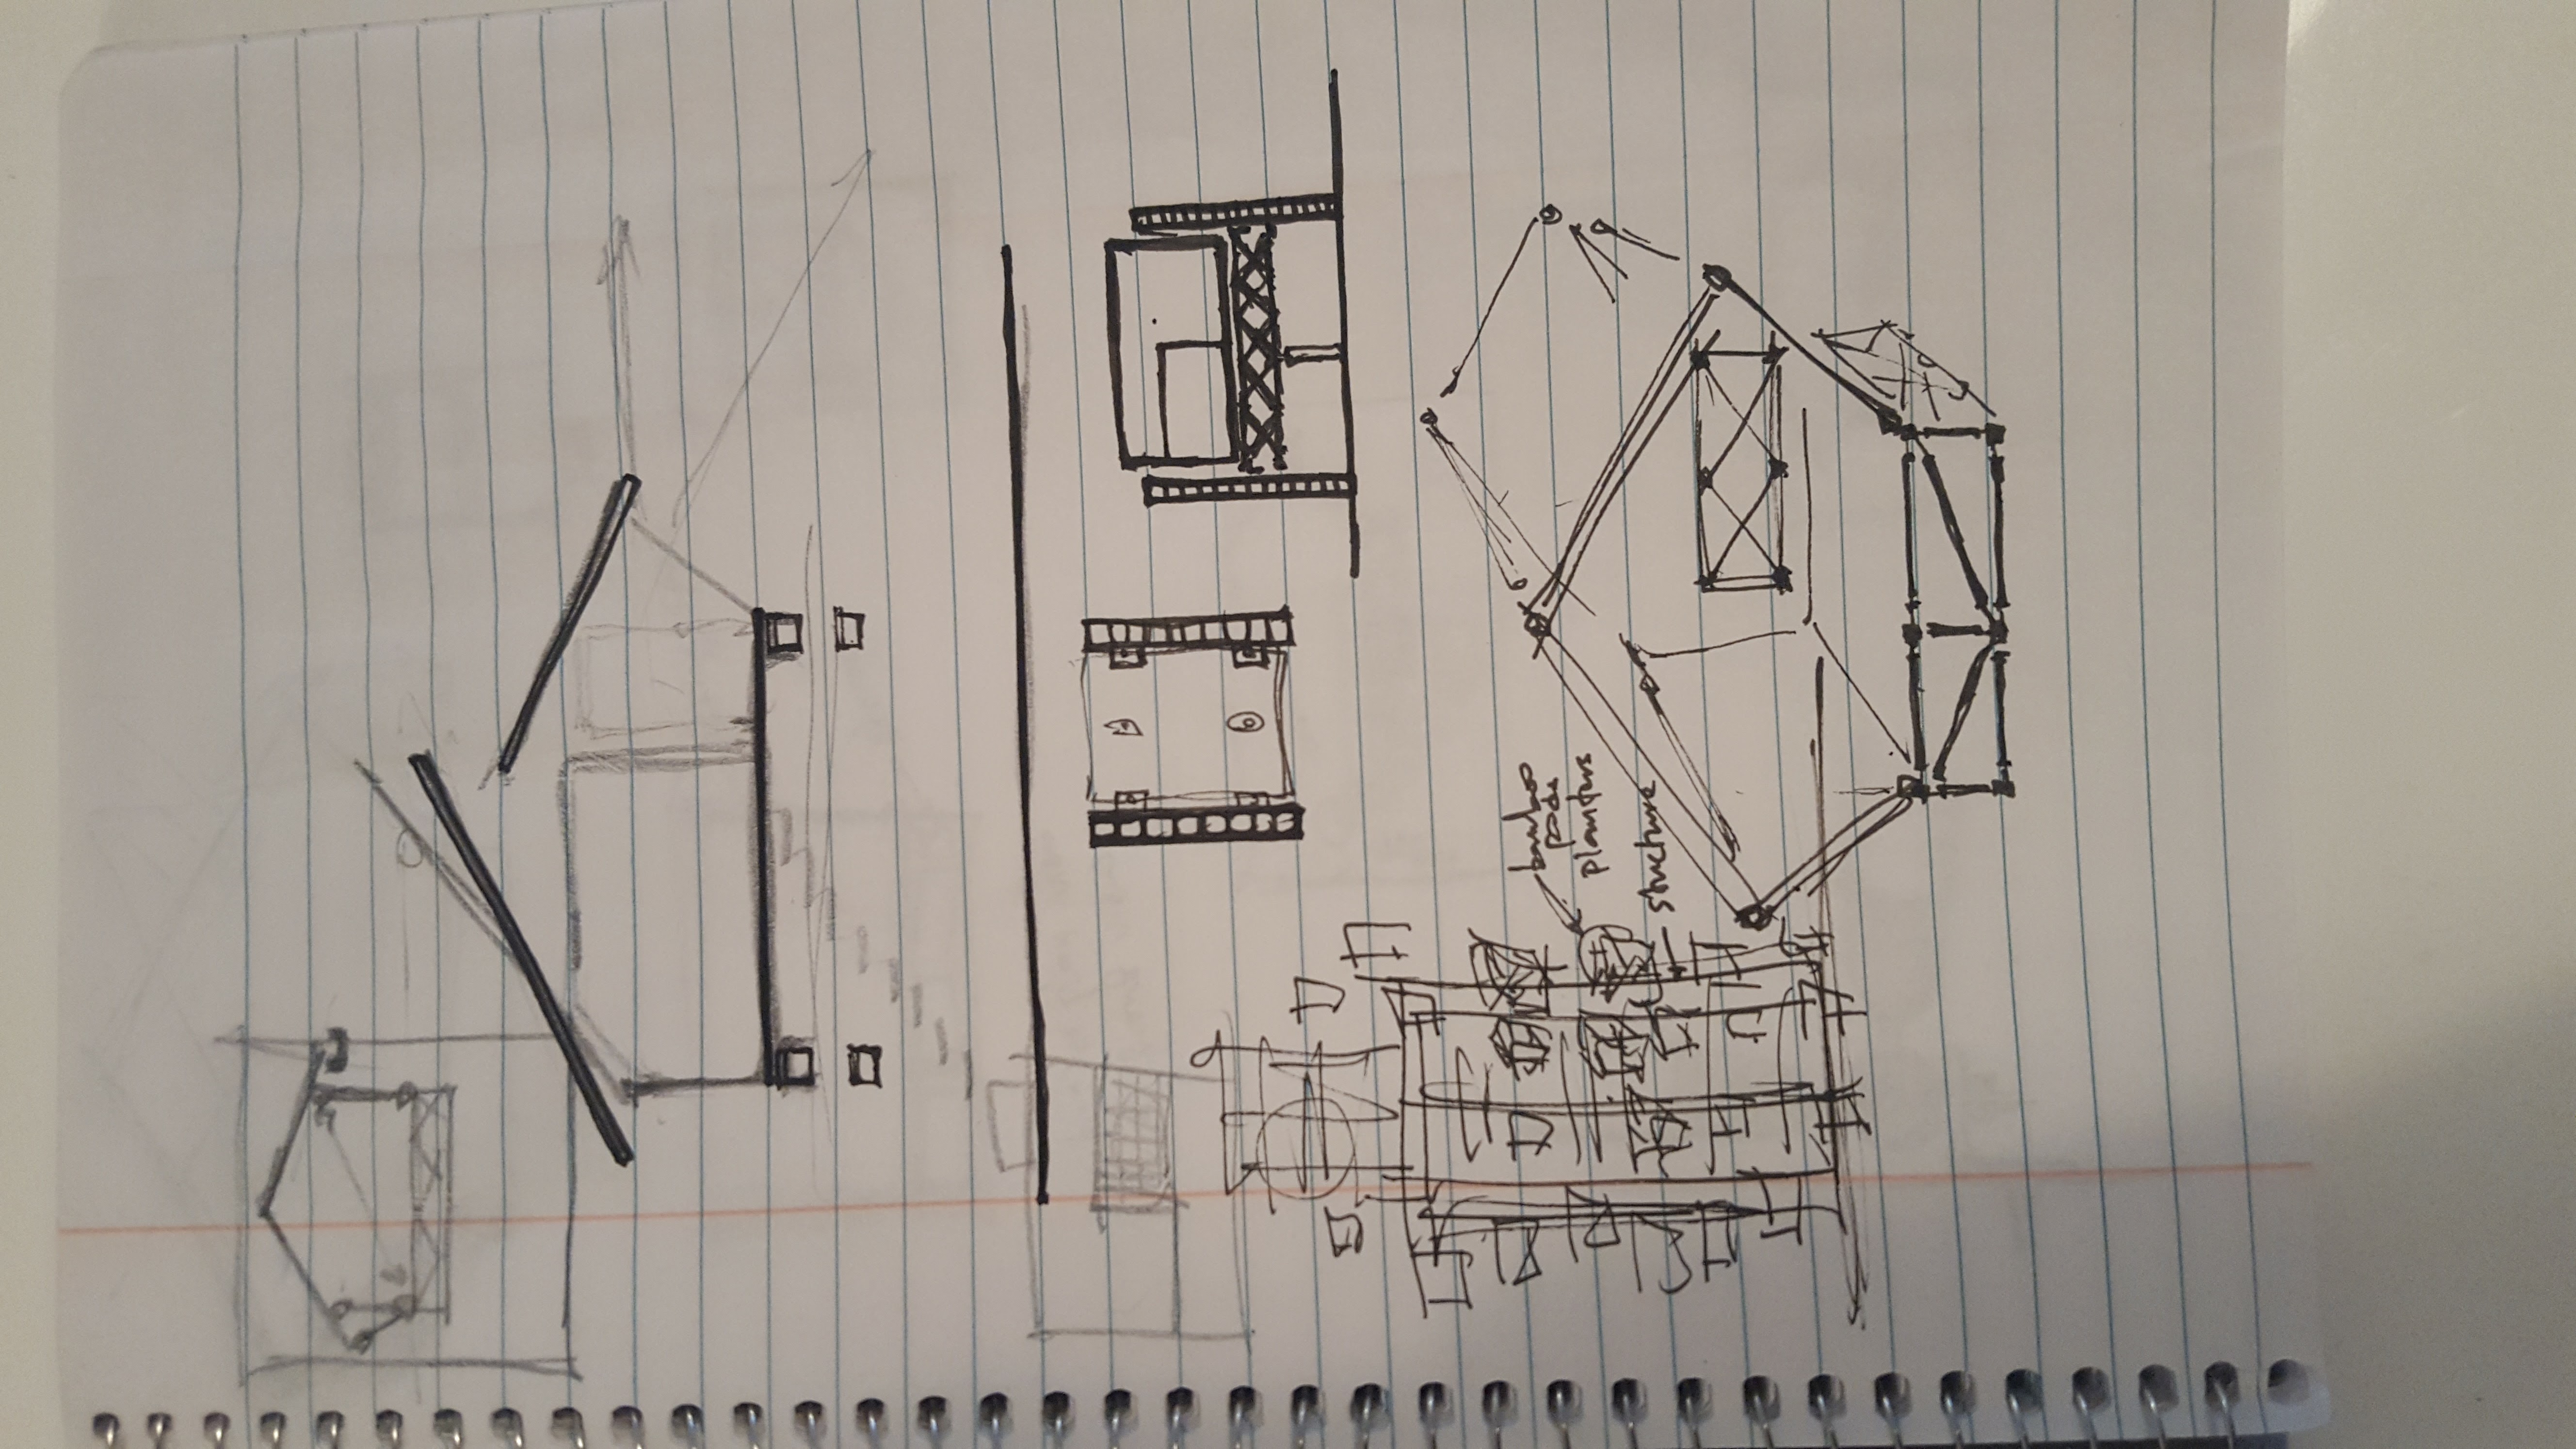 bamboo
pods
planters
structure